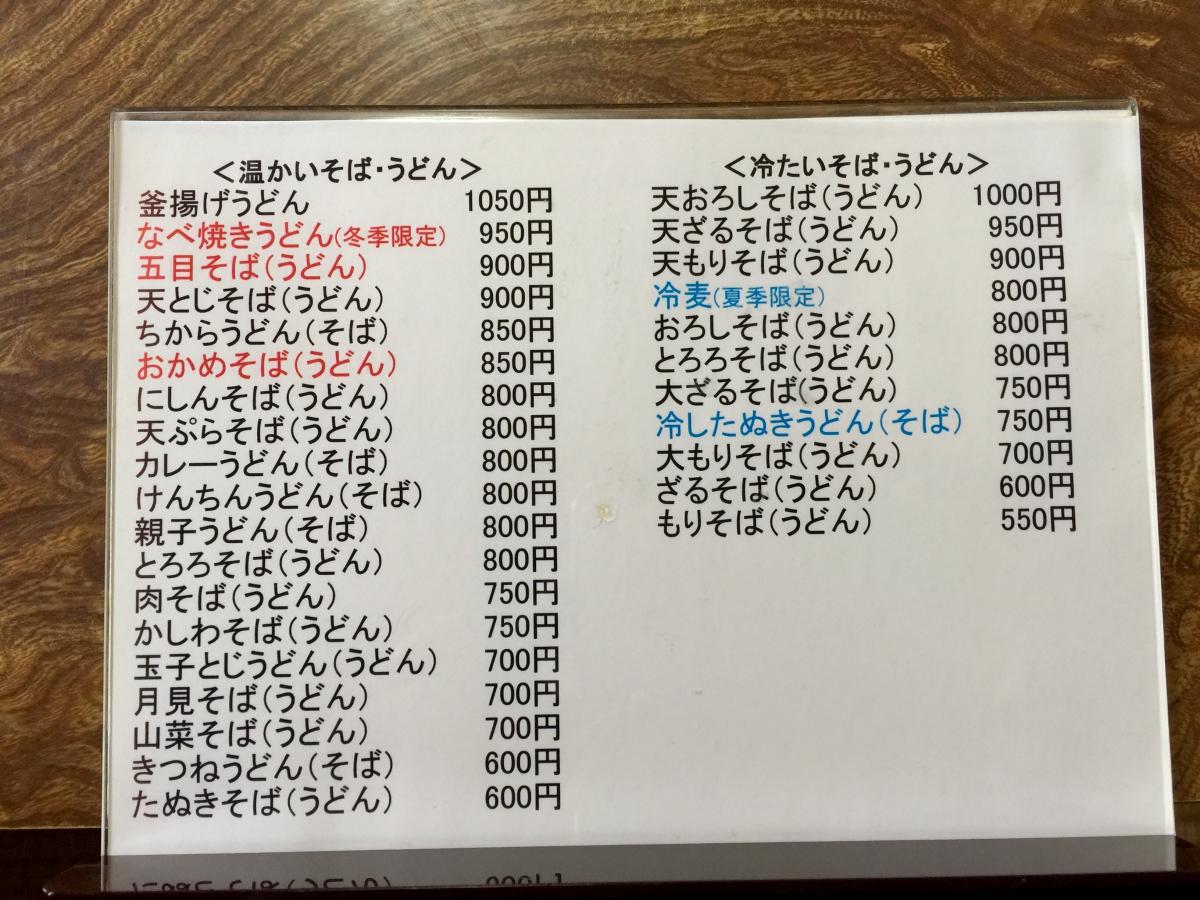 ＜温かいそば・うどん＞
釜揚げうどん 1050円
なべ焼きうどん(冬季限定) 950円
五目そば(うどん) 900円
天とじそば(うどん) 900円
ちからうどん(そば) 850円
おかめそば(うどん) 850円
にしんそば(うどん) 800円
天ぷらそば(うどん) 800円
カレーうどん(そば) 800円
けんちんうどん(そば) 800円
親子うどん(そば) 800円
とろろそば(うどん) 800円
肉そば(うどん) 750円
かしわそば(うどん) 750円
玉子とじうどん(うどん) 700円
月見そば(うどん) 700円
山菜そば(うどん) 700円
きつねうどん(そば) 600円
たぬきそば(うどん) 600円
＜冷たいそば・うどん＞
天おろしそば(うどん) 1000円
天ざるそば(うどん) 950円
天もりそば(うどん) 900円
冷麦(夏季限定) 800円
おろしそば(うどん) 800円
とろろそば(うどん) 800円
大ざるそば(うどん) 750円
冷したぬきうどん(そば) 750円
大もりそば(うどん) 700円
ざるそば(うどん) 600円
もりそば(うどん) 550円